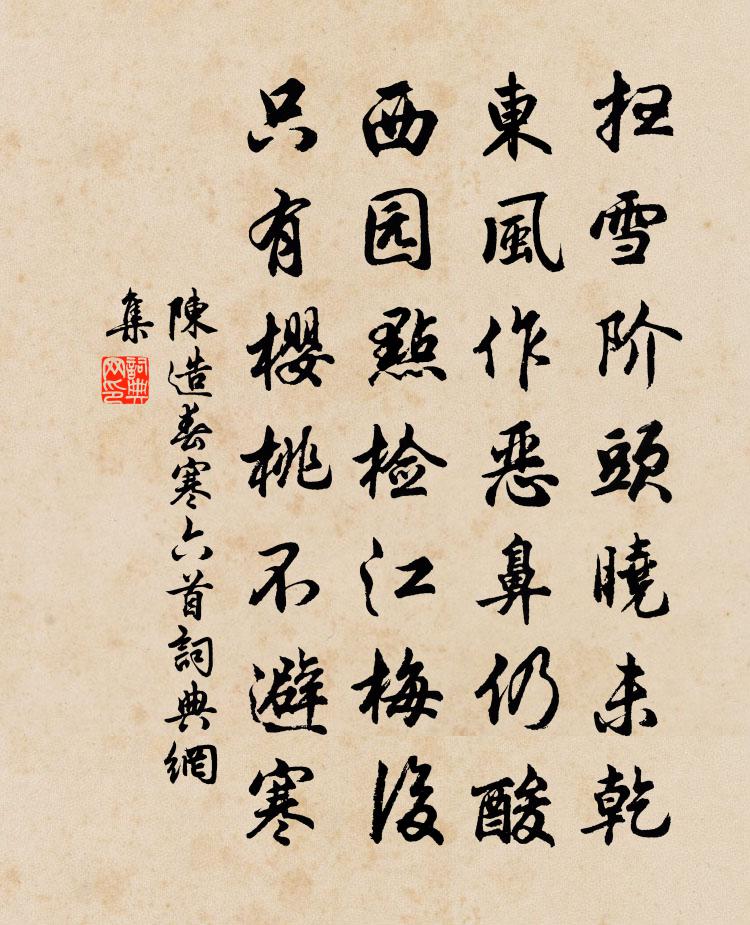 扫雪阶頭曉未乾
東風作惡鼻仍酸
西园點檢江梅後
只有櫻桃不避寒
陳造春寒六首詞典網
集
詞典
网印